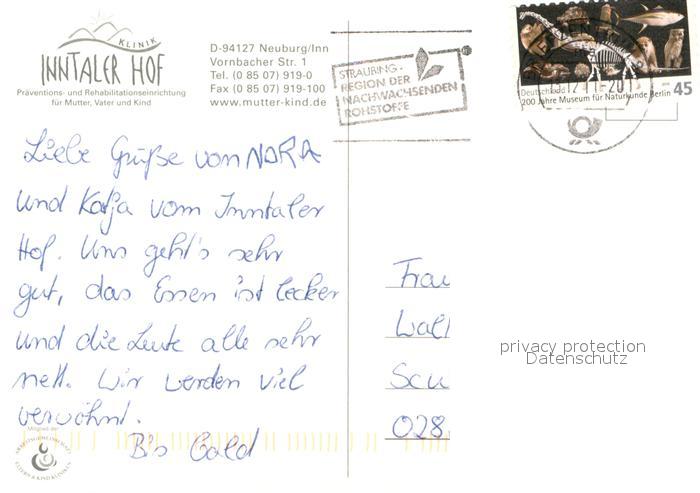 KLINIK
INNTALER HOF
Präventions- und Rehabilitationseinrichtung
für Mutter, Vater und Kind
D-94127 Neuburg/Inn
Vornbacher Str. 1
Tel. (0 85 07) 919-0
Fax (0 85 07) 919-100
www.mutter-kind.de
STRAUBING -
REGION DER
NACHWACHSENDEN
ROHSTOFFE
Deutschland
200 Jahre Museum für Naturkunde Berlin 45
Liebe Grüße vom NORA
und Katja vom Inntaler
Hof. Uns geht's sehr
gut, das Essen ist lecker
und die Leute alle sehr
nett. Wir werden viel
verwöhnt.
Bis Bald
Frau
Wall
028
privacy protection
Datenschutz
Mitglied der